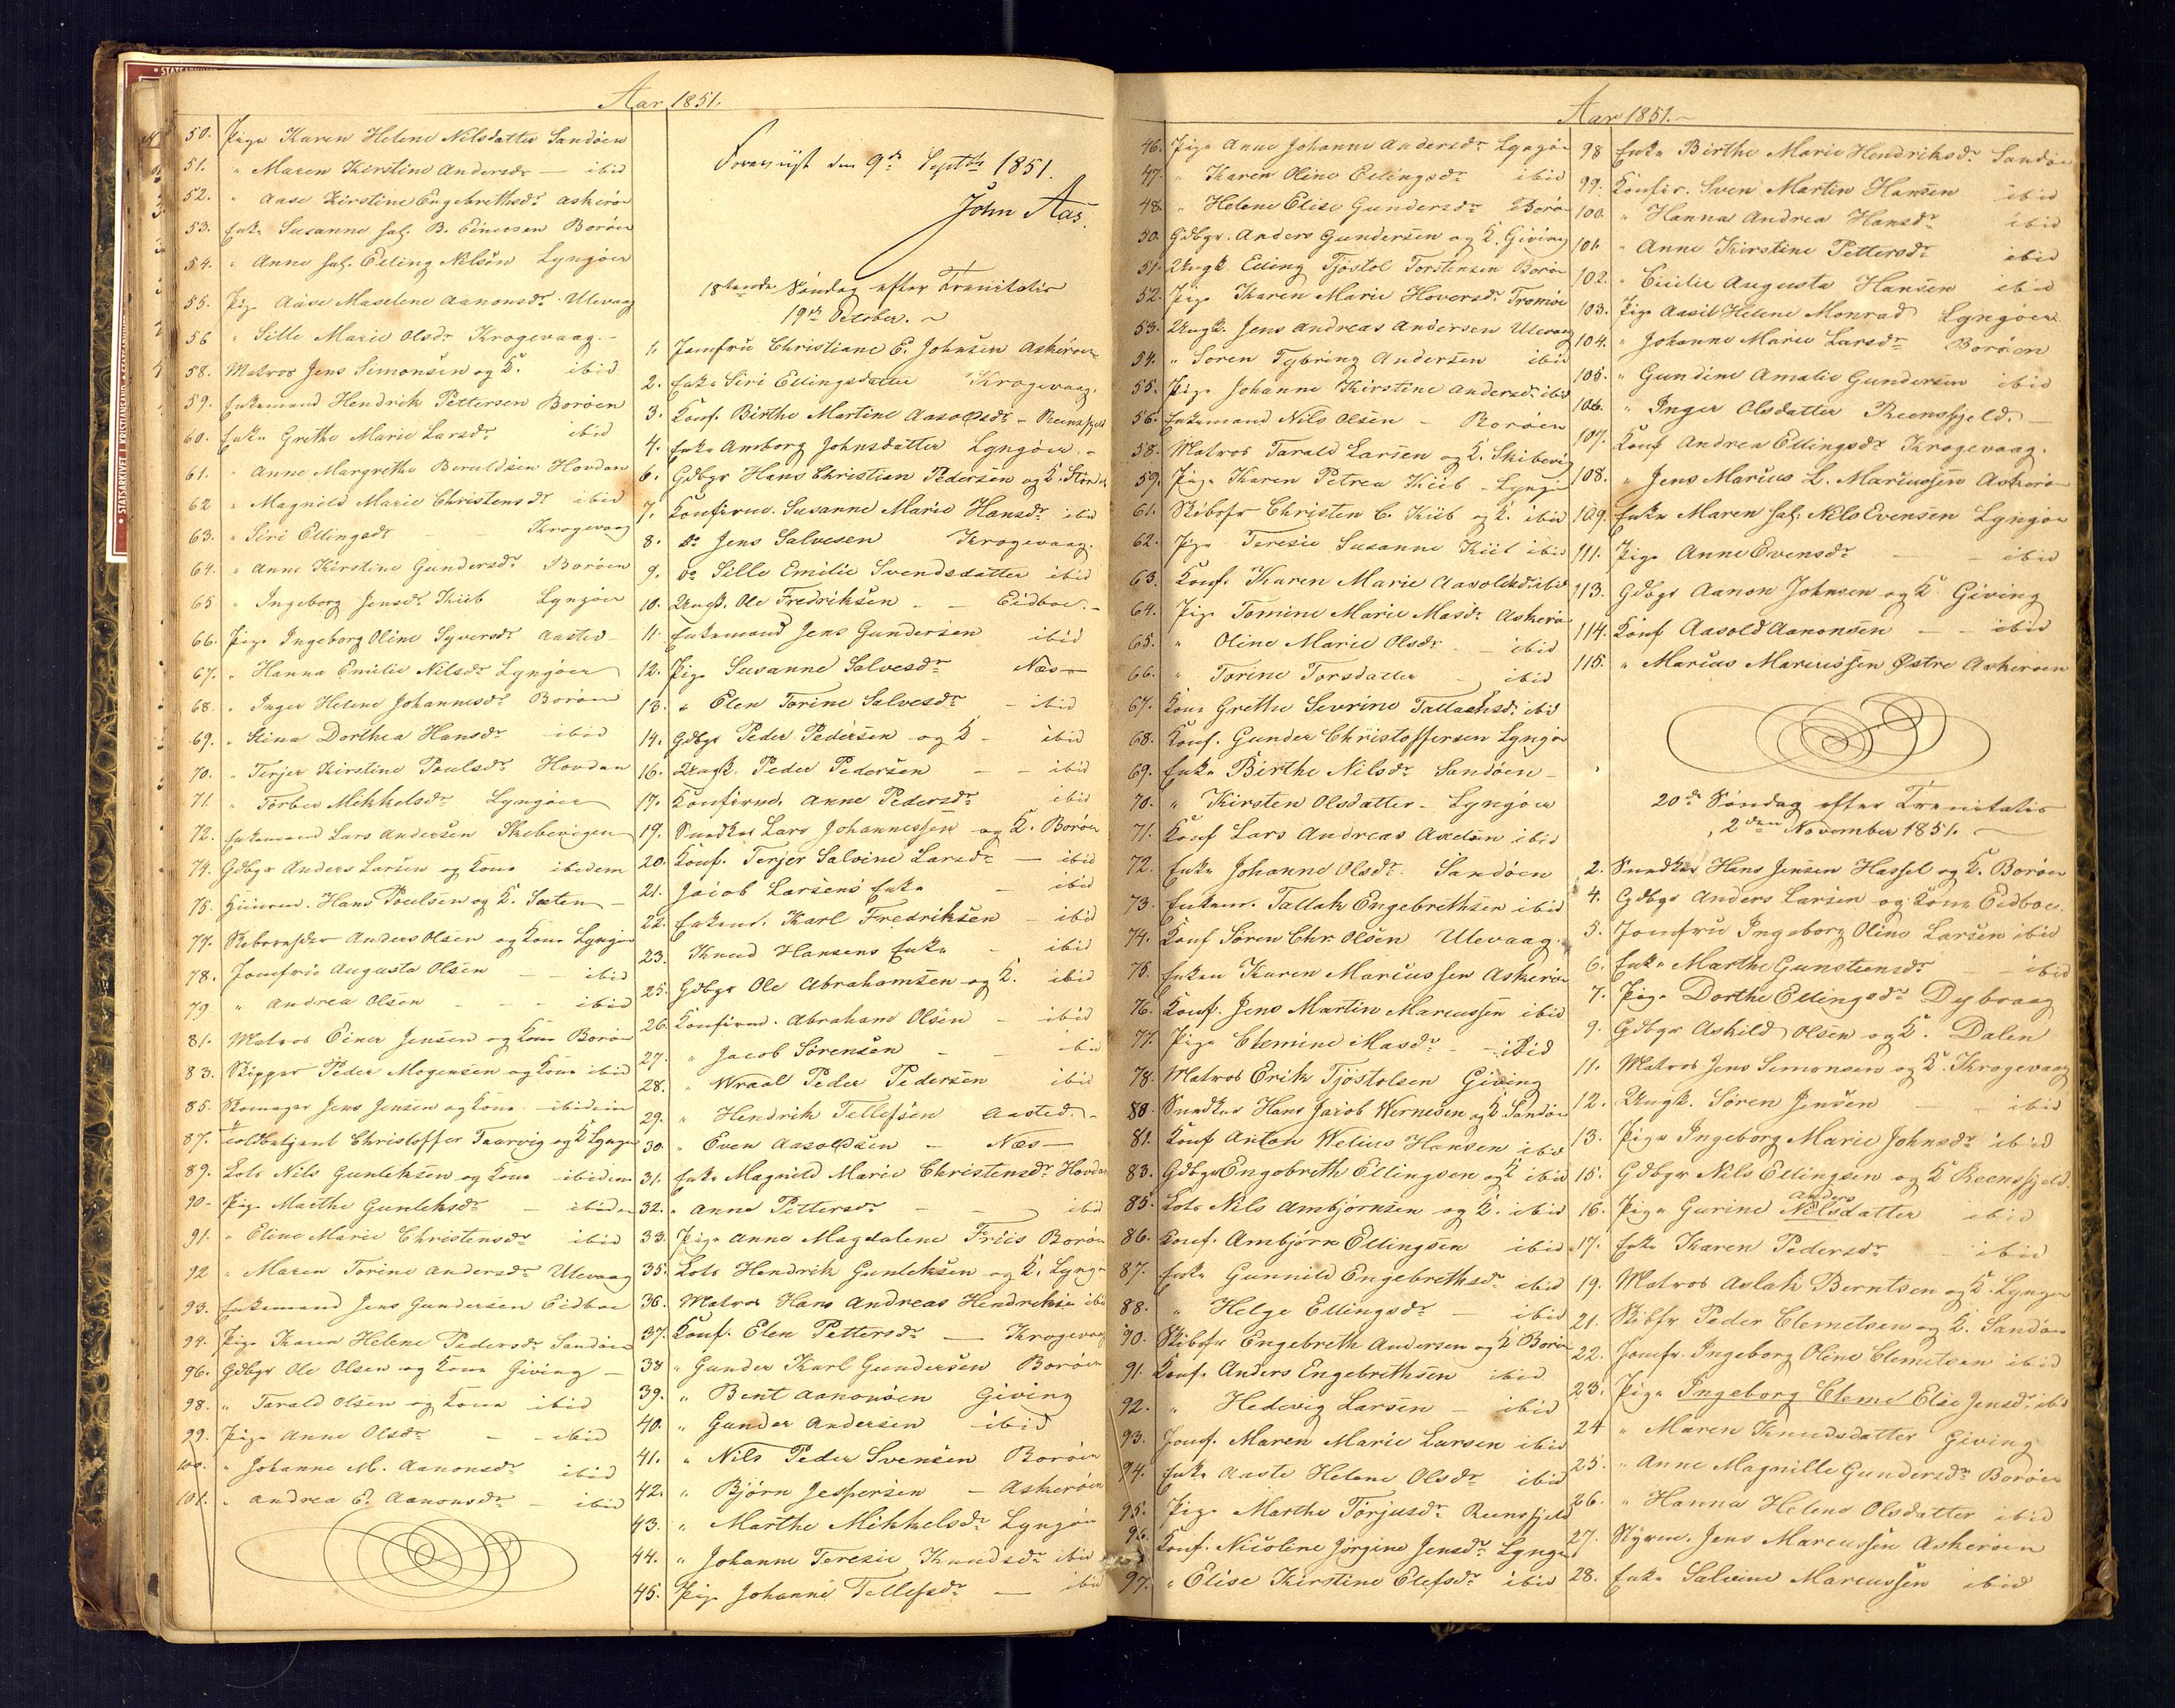 Aar 1851.
50. Pige Karen Helene Nilsdatter Sandøen
51. " Maren Kirstine Andersdr — ibid
52. " Aase Kirstine Engebrethsdr Askerøe
53. Enke Susanne sal. B. Einersen Borøen
54. " Anne sal. Elling Nilsen Lyngøer
55. Pig Aase Maselene Aanonsdr Ulevaag
56 " Sille Marie Olsdr Krogevaag. -
58. Matros Jens Simonsen og K. ibid
59. Enkemand Hendrik Pettersen Borøen
60. Enke Grethe Marie Larsdr ibid
61. " Anne Margrethe Beruldsen Hovdan
62 " Magnild Marie Christensdr ibid
63. " Siri Ellingsdr - Krogevaag
64. " Anne Kirstine Gundersdr Borøen
65 " Ingeborg Jensdr Kiib Lyngøer
66. Pige Ingeborg Oline Syversdr Aasted -
67. " Hanna Emilie Nilsdr Lyngøer
68. " Inger Helene Johannesdr Borøen
69. " Stina Dorthea Hansdr ibid
70. " Terjer Kirstine Poulsdr Hovdan
71. " Torber Mikkelsdr Lyngøer
72. Enkemand Lars Andersen Skibevigen
74. Gdbgr Anders Larsen og Kone ibidem
75. Huusmd. Hans Poulsen og K. Sæten -
77. Anders Olsen og Kone Lyngør
78. Jomfrue Augusta Olsen — ibid
79 " Andrea Olsen - - - ibid
81. Matros Einer Jensen og Kone Borøe
83. Skipper Peder Mogensen og Kone ibid
85. Skomager Jens Jensen og Kone ibidem
87. Toldbetjent Christoffer Taarvig og K Lyngør
89. Lods Nils Gunleksen og Kone ibidem
90. Pige Marthe Gunleksdr - ibidem
91. " Eline Marie Christensdr ibid
92 " Maren Torine Andersdr Ulevaag
93. Enkemand Jens Gundersen Eidboe
94. Pige Karen Helene Pedersdr Sandøen
96. Gdbgr Ole Olsen og Kone Giving -
98. " Tarald Olsen og Kone ibid
99. Pige Anne Olsdr - - ibid
100. " Johanne M. Aanonsdr ibid
101. " Andrea E. Aanonsdr - ibid
Foreviist den 9de Septbr 1851.
John Aas.
18tende Søndag efter Trenitatis
19de October. ~
1. Jomfrue Christiane E. Johnsen Askerøen
2. Enke Siri Ellingsdatter Krogevaag.
3. Konf. Birthe Martine Aasoldsdr - Reensfjeld
4. Enke Amborg Johnsdatter Lyngøer. -
6. Gdbgr Hans Christian Pedersen og K.
7. Konfirmd. Susanne Marie Hansdr ibid
8. Do Jens Salvesen Krogevaag.
9. Do Sille Emilie Svendsdatter ibid
10. Ungk. Ole Fredriksen - - Eidboe. -
11. Enkemand Jens Gundersen ibid
12. Pige Susanne Salvesdr Næs -
13. " Elen Torine Salvesdr - ibid
14. Gdbgr Peder Pedersen og K - ibid
16. Ungk. Peder Pedersen - - ibid
17. Konfirmd. Anne Pedersdr ibid
19. Snedker Lars Johannessen og K. Borøen
20. Konf. Terjer Salvine Larsdr — ibid
21. Jacob Larsens Enke - ibid
22. Enkemd. Karl Fredriksen - ibid
23. Knud Hansens Enke - ibid
25. Gdbgr Ole Abrahamsen og K. ibid
26. Konfirmd. Abraham Olsen - ibid
27. " Jacob Sørensen - - ibid
28. " Wraal Peder Pedersen ibid
29. " Hendrik Tellefsen Aasted. -
30. " Even Aasoldsen - Næs -
31. Enke Magnild Marie Christensdr Hovdan
32. " Anne Pettersdr - - ibid
33. Pige Anne Magdalene Friis Borøen
35. Lods Hendrik Gunleksen og K. Lyngør
36. Matros Hans Andreas Hendriksen ibid
37. Konf. Elen Pettersdr — Krogevaag
38 " Gunder Karl Gundersen Borøen
39. " Bent Aanonsen Giving
40. " Gunder Andersen ibid
41. " Nils Peder Svensen Borøen
42. " Bjørn Jespersen - Askerøen
43. " Marthe Mikkelsdr Lyngør
44. " Johanne Teresie Knudsdr ibid
45. Pige Johanne Tellefsdr — ibid
Aar 1851. -
46. Pige Anne Johanne Andersdr Lyngøer
47. " Karen Oline Ellingsdr ibid
48. " Helene Elise Gundersdr Borøe
50. Gdbgr. Anders Gundersen og K. Giving
51. Ungk. Elling Tjøstol Torstensen Borøe
52. Pige Karen Marie Hoversdr Tromøe
53. Ungk. Jens Andreas Andersen Ulevaag
54. " Søren Tybring Andersen ibid
55. Pige Johanne Kirstine Andersdr. ibid
56. Enkemand Nils Olsen - Borøen
58. Matros Tarald Larsen og K. Skibevig
59. Pige Karen Petrea Kiib - Lyngør
61. Skibsfr Christen C. Kiib og K. ibid
62. Pige Teresie Susanne Kiib ibid
63. Konf. Karen Marie Aasoldsd. ibid
64. Pige Tomine Marie Masdr Askerøe
65. " Oline Marie Olsdr - ibid
66. " Torine Torsdatter - ibid
67. Kone Grethe Severine Tallachsd. ibid
68. Konf. Gunder Christoffersen Lyngør
69. Enke Birthe Nilsdr Sandøen -
70. " Kirsten Olsdatter - Lyngøer
71. Konf Lars Andreas Axelsen ibid
72. Enke Johanne Olsdr. Sandøen
73. Enkem. Tallak Engebrethsen ibid
74. Konf Søren Chr Olsen Ulevaag.
75. Enken Karen Mariussen Askerøe
76. Konf. Jens Martin Mareussen ibid
77. Pige Elemine Masdr - ibid
78. Matros Erik Tjøstolsen Giving
80. Snedker Hans Jacob Wernesen og K. Sandøe
81. Konf Anton Welius Hansen ibid
83. Gdbgr Engebreth Ellingsen og K ibid
85. Lods Nils Ambjørnsen og K. ibid
86. Konf. Ambjørn Ellingsen ibid
87. Enke Gunnild Engebrethsdr ibid
88. " Helge Ellingsdr — ibid
90. Skibsfr Engebreth Andersen og K Borøe
91. Konf. Anders Engebrethsen ibid
92. " Hedevig Larsen - ibid
93. Jomf. Maren Marie Larsen ibid
94. Enke Aaste Helene Olsdr ibid
95. Pige Marthe Torjusdr Reensfjeld
96. Konf. Nicoline Jørgine Jensdr Lyngør
97. " Elise Kirstine Elefsdr ibid
98 Enke Birthe Marie Hendriksdr. Sandøe
99. Konfir. Sven Martin Hansen ibid
100. " Hanna Andrea Hansdr ibid
101. " Anne Kirstine Pettersdr ibid
102. " Cicilie Augusta Hansen ibid
103. Pige Aasil Helene Monrad Lyngøer
104. " Johanne Marie Larsdr Borøen
105. " Gundine Amalie Gundersen ibid
106. " Inger Olsdatter Reensfjeld. —
107. Konf Andrea Ellingsdr Krogevaag.
108. " Jens Marius L. Mariussen Askerøe
109. Enke Maren sal. Nils Evensen Lyngøe
111. Pige Anne Evensdr — — ibid
113. Gdbgr Aanon Johnsen og K Giving
114. Konf Aasold Aanonsen — - ibid
115. " Marius Mareussen Østre Askerøen
20de Søndag efter Trenitatis
2den November 1851.
2. Snedker Hans Jensen Hassel og K. Borøen
4. Gdbgr Anders Larsen og Kone Eidboe.
5. Jomfrue Ingeborg Oline Larsen ibid
6. Enke Marthe Gunsteensdr - ibid
7. Pige Dorthe Ellingsdr Dybvaag
9. Gdbgr Askild Olsen og K. Dalen
11. Matros Jens Simonsen og K. Krogevaag
12. Ungk. Søren Jensen - ibid
13. Pige Ingeborg Marie Johnsdr ibid
15. Gdbgr Nils Ellingsen og K Reensfjeld.
Anders
16. Pige Gurine Nilsdatter ibid
17. Enke Karen Pedersdr - ibid
19. Matros Aslak Berntsen og K. Lyngør
21. Skibsfr Peder Clemetsen og K. Sandøe
22. Jomfr. Ingeborg Oline Clemetsen ibid
23. Pige Ingeborg Eleme Elise Jensdr. ibid
24 " Maren Knudsdatter Giving
25. " Anne Magnille Gundersdr Borøen
26. " Hanna Helene Olsdatter ibid
27. Styrm. Jens Mareussen Askerøen
28. Enke Salvine Mareussen ibid